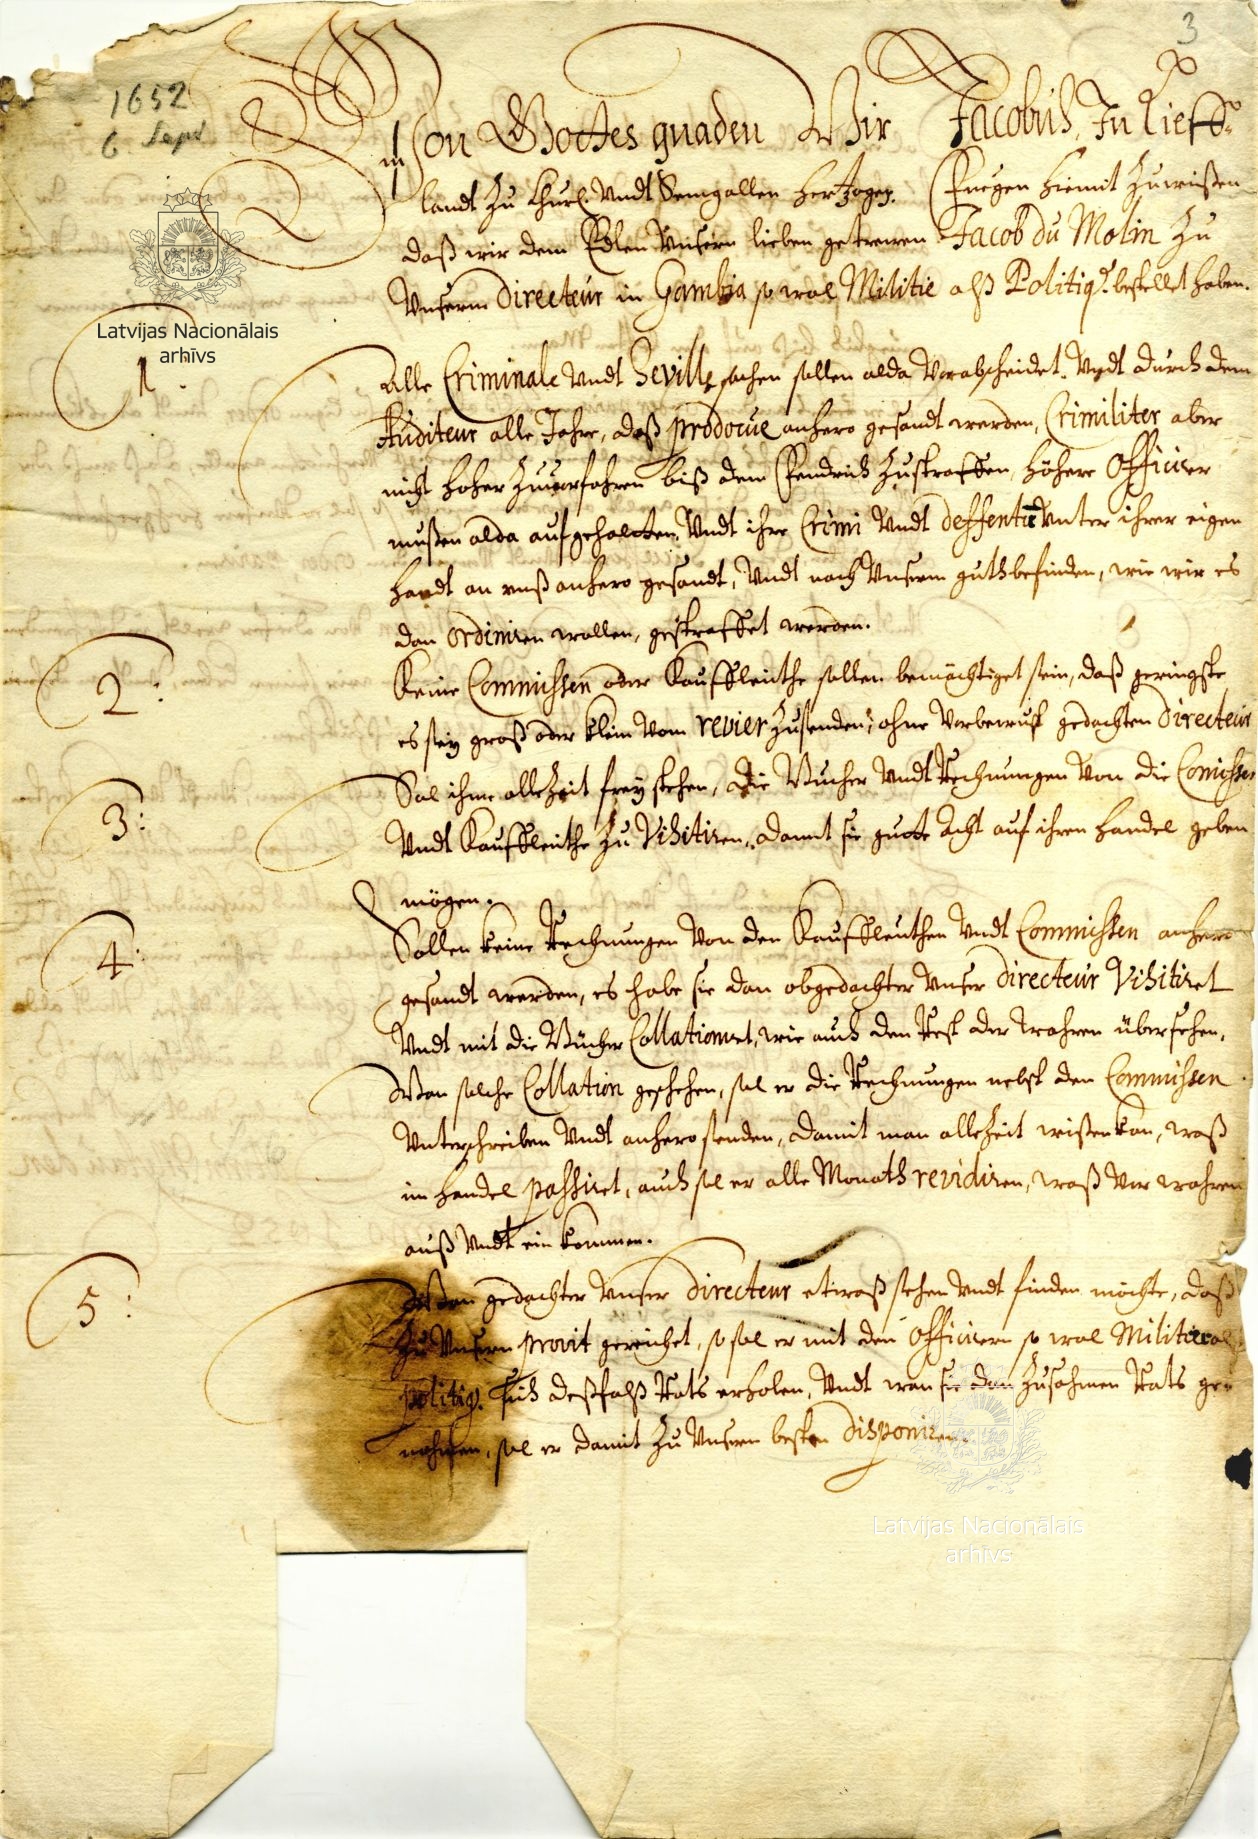 3
1652
6. Sept
Von Gottes gnaden Wir Jacobus, In Lieff-
landt zu Churl. Vndt Semgallen Hertzogen. Fuegen hiemit zuwißen
daß wir dem Edlen Vnsern lieben getrewen Jacob du Molin zu
Vnserm Directeur in Gambia so wol Militie alß Politiq. bestellet haben.
Latvijas Nacionālais
arhīvs
1.
Alle Criminale Vndt Seville sachen sollen alda Verabscheidet, Vndt durch dem
Auditeur alle Jahre, daß prodocue anhero gesandt werden, Crimiliter aber
nicht hoher zuuerfahren biß dem Fendrich zustraffen, höhere Officirer
mußen alda aufgehalten, Vndt ihre Crimi Vndt deffentie Vnter ihrer eigen
handt an vnß anhero gesandt, Vndt nach Vnserm guthbefinden, wie wir es
dan ordiniren wollen, gestraffet werden.
2:
Keine Commissen oder Kauffleuthe sollen bemächtiget sein, daß geringste
es sey groß oder klein vom revier zusenden, ohne Vorbewust gedachten Directeur
3:
Sol ihme allezeit frey stehen, die Bucher Vndt Rechnungen Von die Comissen
Vndt Kauffleuthe zu Visitiren, damit sie gutte Acht auf ihren handel geben
mögen.
4:
Sollen keine Rechnungen Von den Kauffleuthen Vndt Commissen anhero
gesandt werden, es habe sie dan obgedachter Vnser Directeur Visitiret
Vndt mit die Bücher Collationiret, wie auch den Rest der wahren übersehen,
Wan solche Collation geschehen, sol er die Rechnungen nebst den Commissen
Vnterschreiben Vndt anhero senden, damit man allezeit wißen kan, waß
im handel passiret, auch sol er alle Monath revidiren, waß Vor wahren
auß Vndt ein kommen.
5:
Wan gedachter Vnser Directeur etwaß sehen Vndt finden möchte, daß
zu Vnsern provit gereichet, so sol er mit den Officirern so wol Militie als
politiq. sich deßfalß Rats erholen, Vndt wan sie dan zusahmen Rats ge-
nohmen, sol er damit zu Vnsern besten disponiren.
Latvijas Nacionālais
arhīvs